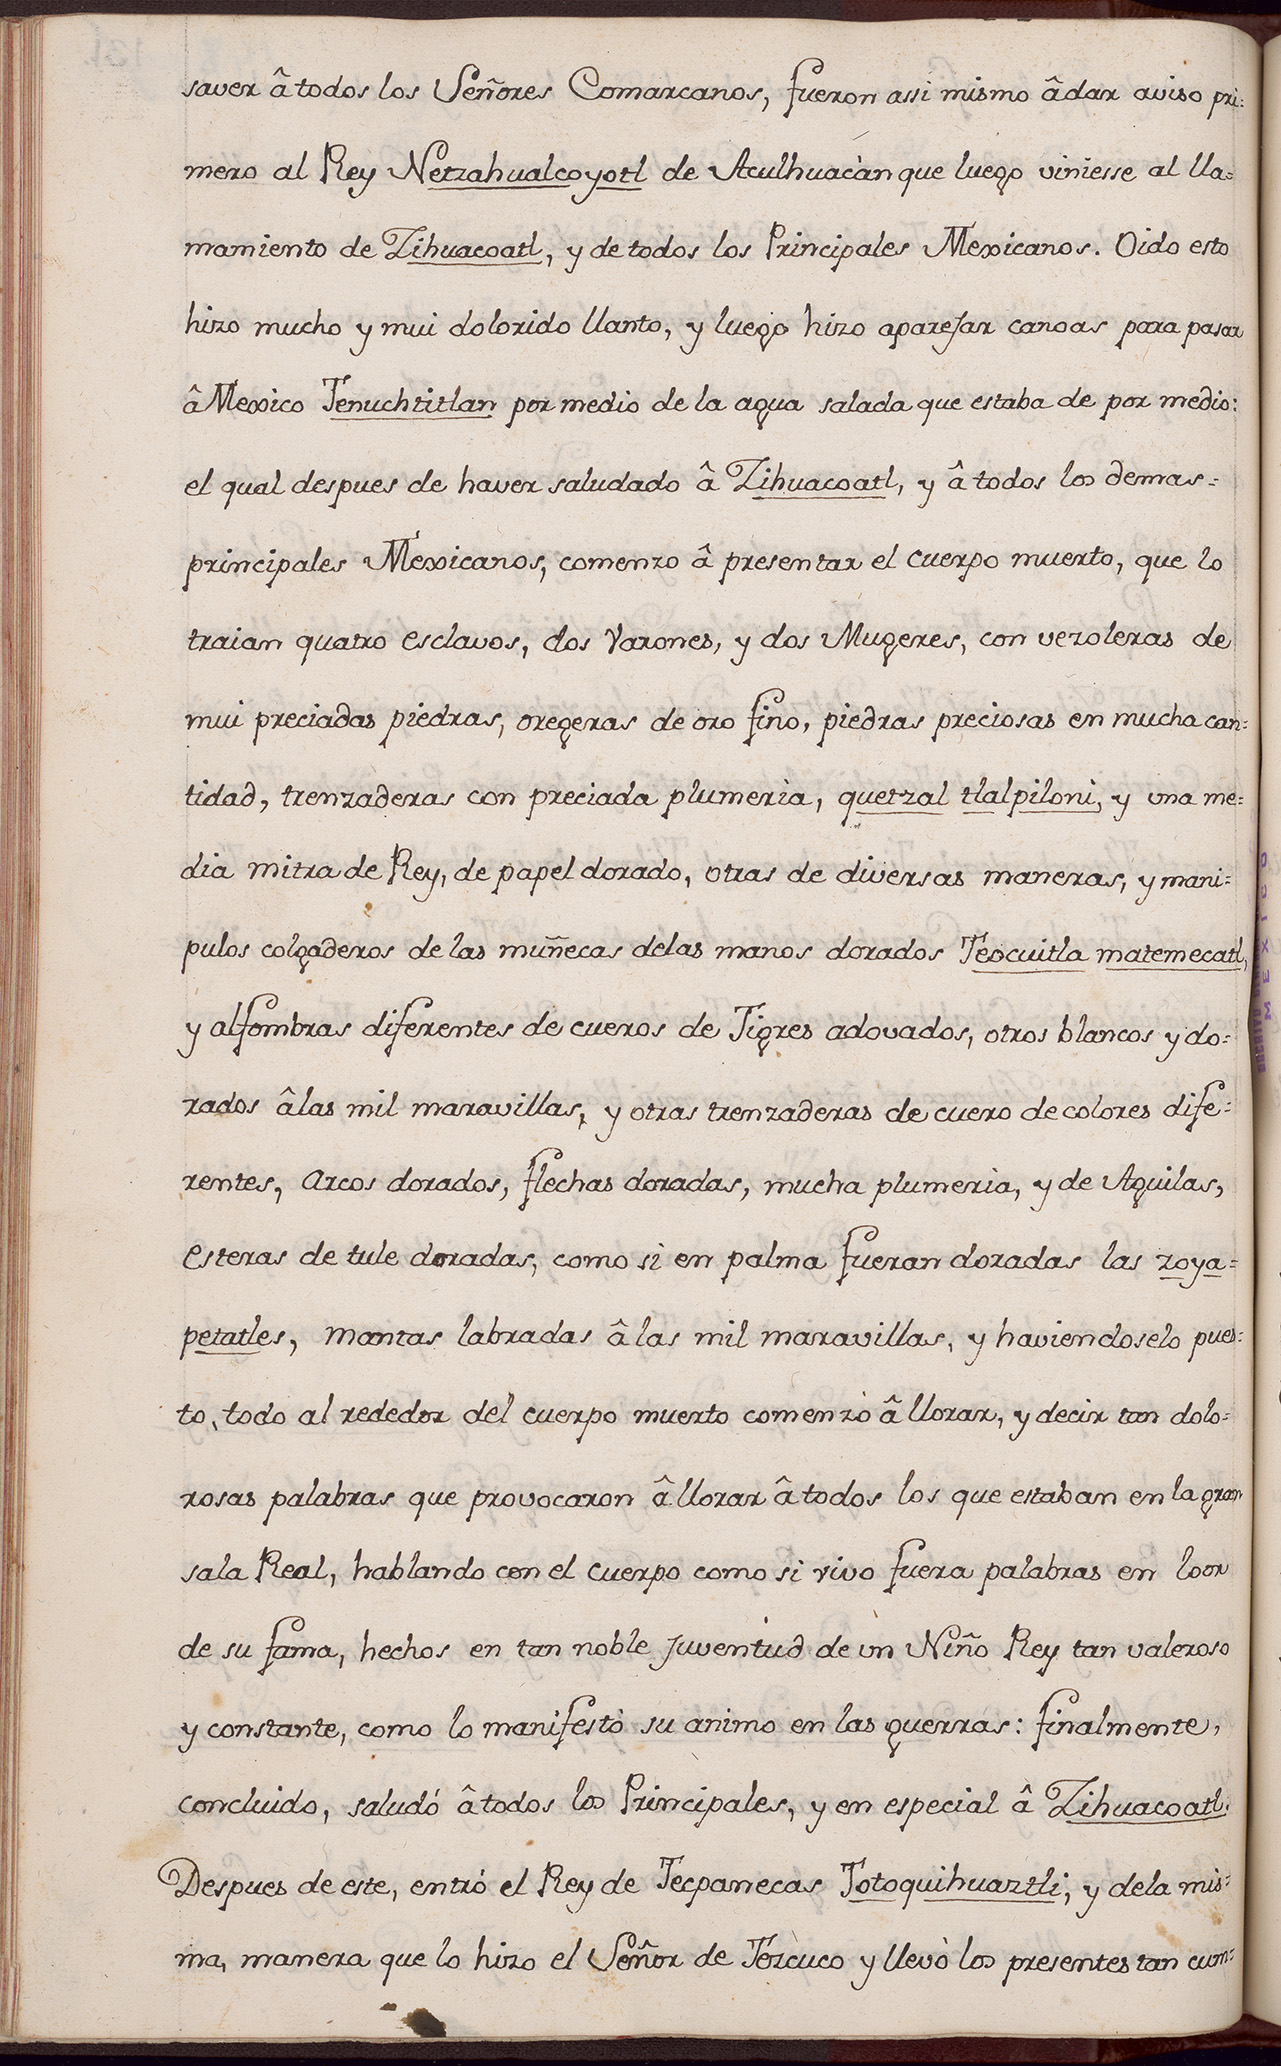 saver â todos los Señores Comarcanos, fueron assi mismo â dar aviso pri=
mero al Rey Netzahualcoyotl de Aculhuacàn que luego viniesse al lla=
mamiento de Zihuacoatl, y de todos los Principales Mexicanos. Oido esto
hizo mucho y mui dolorido llanto, y luego hizo aparejar canoas para pasar
â Mexico Tenuchtitlan por medio de la agua salada que estaba de por medio:
el qual despues de haver saludado â Zihuacoatl, y â todos los demas=
principales Mexicanos, comenzo â presentar el cuerpo muerto, que lo
traian quatro esclavos, dos Varones, y dos Mugeres, con vezoleras de
mui preciadas piedras, oregeras de oro fino, piedras preciosas en mucha can=
tidad, trenzaderas con preciada plumeria, quetzal tlalpiloni, y una me=
dia mitra de Rey, de papel dorado, otras de diversas maneras, y mani=
pulos colgaderos de las muñecas delas manos dorados Teocuitla matemecatl,
y alfombras diferentes de cueros de Tigres adovados, otros blancos y do=
rados â las mil maravillas, y otras trenzaderas de cuero de colores dife=
rentes, arcos dorados, flechas doradas, mucha plumeria, y de Aguilas,
esteras de tule doradas, como si en palma fueran doradas las zoya=
petatles, mantas labradas â las mil maravillas, y haviendoselo pues=
to, todo al rededor del cuerpo muerto comenzò â llorar, y decir tan dolo=
rosas palabras que provocaron â llorar â todos los que estaban en la gran
sala Real, hablando con el cuerpo como si vivo fuera palabras en loor
de su fama, hechos en tan noble juventud de un Niño Rey tan valeroso
y constante, como lo manifestò su animo en las guerras: finalmente,
concluido, saludó â todos los Principales, y en especial â Zihuacoatl.
Despues de este, entró el Rey de Tecpanecas Totoquihuaztli, y dela mis=
ma, manera que lo hizo el Señor de Tezcuco y llevò los presentes tan cum=